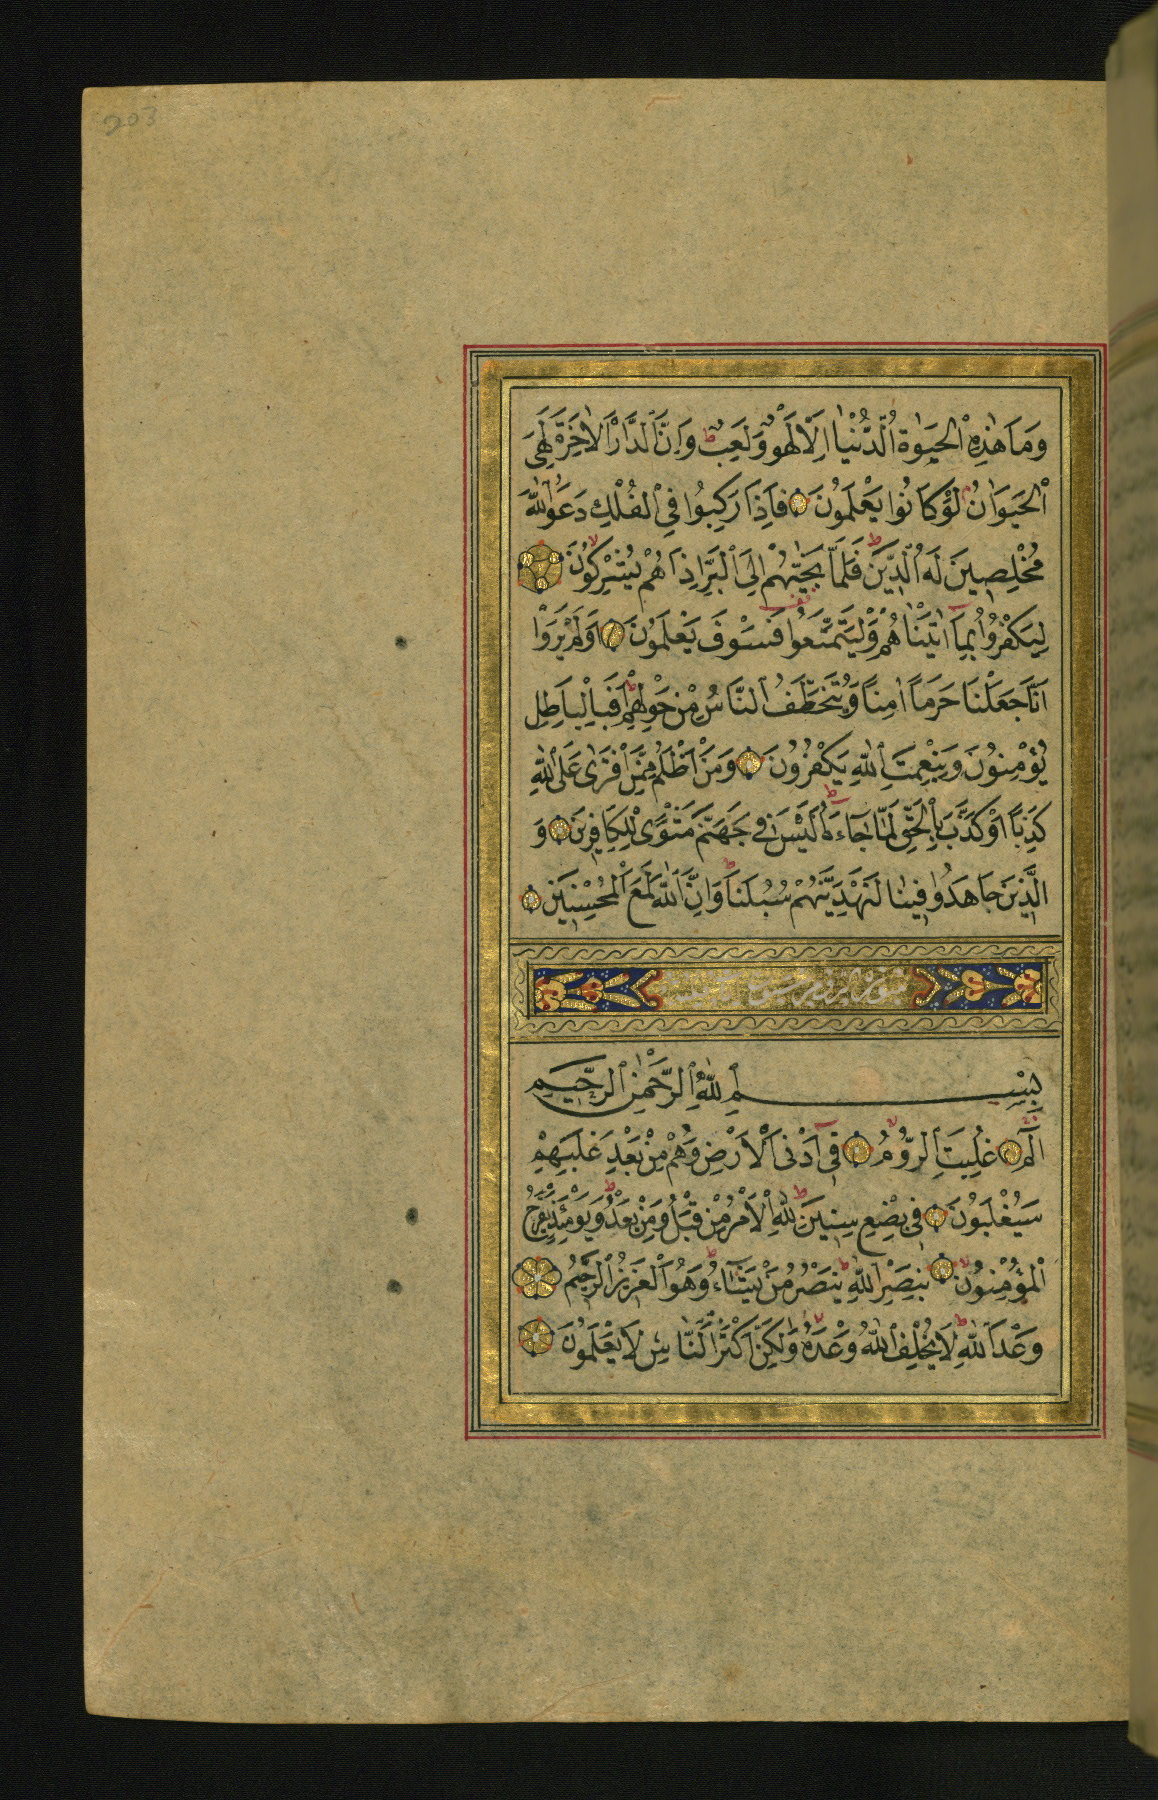 203
وَمَا هٰذِهِ الْحَيٰوةُ الدُّنْيَا اِلَّا لَهْوٌ وَلَعِبٌ وَاِنَّ الدَّارَ الْاٰخِرَةَ لَهِىَ
الْحَيَوَانُ لَوْ كَانُوا يَعْلَمُونَ فَاِذَا رَكِبُوا فِى الْفُلْكِ دَعَوُا اللّٰهَ
مُخْلِصِينَ لَهُ الدِّينَ فَلَمَّا نَجّٰيهُمْ اِلَى الْبَرِّ اِذَا هُمْ يُشْرِكُونَ
لِيَكْفُرُوا بِمَا اٰتَيْنَاهُمْ وَلْيَتَمَتَّعُوا فَسَوْفَ يَعْلَمُونَ اَوَلَمْ يَرَوْا
اَنَّا جَعَلْنَا حَرَمًا اٰمِنًا وَيُتَخَطَّفُ النَّاسُ مِنْ حَوْلِهِمْ اَفَبِالْبَاطِلِ
يُؤْمِنُونَ وَبِنِعْمَتِ اللّٰهِ يَكْفُرُونَ وَمَنْ اَظْلَمُ مِمَّنِ افْتَرٰى عَلَى اللّٰهِ
كَذِبًا اَوْ كَذَّبَ بِالْحَقِّ لَمَّا جَاءَهُ اَلَيْسَ فِى جَهَنَّمَ مَثْوًى لِلْكَافِرِينَ وَ
الَّذِينَ جَاهَدُوا فِينَا لَنَهْدِيَنَّهُمْ سُبُلَنَا وَاِنَّ اللّٰهَ لَمَعَ الْمُحْسِنِينَ
بِسْمِ اللّٰهِ الرَّحْمٰنِ الرَّحِيمِ
الٓمٓ غُلِبَتِ الرُّومُ فِى اَدْنَى الْاَرْضِ وَهُمْ مِنْ بَعْدِ غَلَبِهِمْ
سَيُغْلَبُونَ فِى بِضْعِ سِنِينَ لِلّٰهِ الْاَمْرُ مِنْ قَبْلُ وَمِنْ بَعْدُ وَيَوْمَئِذٍ يَفْرَحُ
الْمُؤْمِنُونَ بِنَصْرِ اللّٰهِ يَنْصُرُ مَنْ يَشَاءُ وَهُوَ الْعَزِيزُ الرَّحِيمُ
وَعْدَ اللّٰهِ لَا يُخْلِفُ اللّٰهُ وَعْدَهُ وَلٰكِنَّ اَكْثَرَ النَّاسِ لَا يَعْلَمُونَ